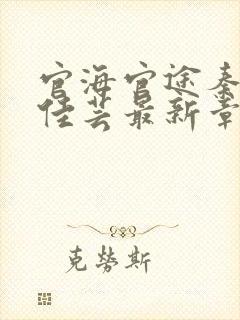 官海官途秦
佳芸最新章
克勞斯